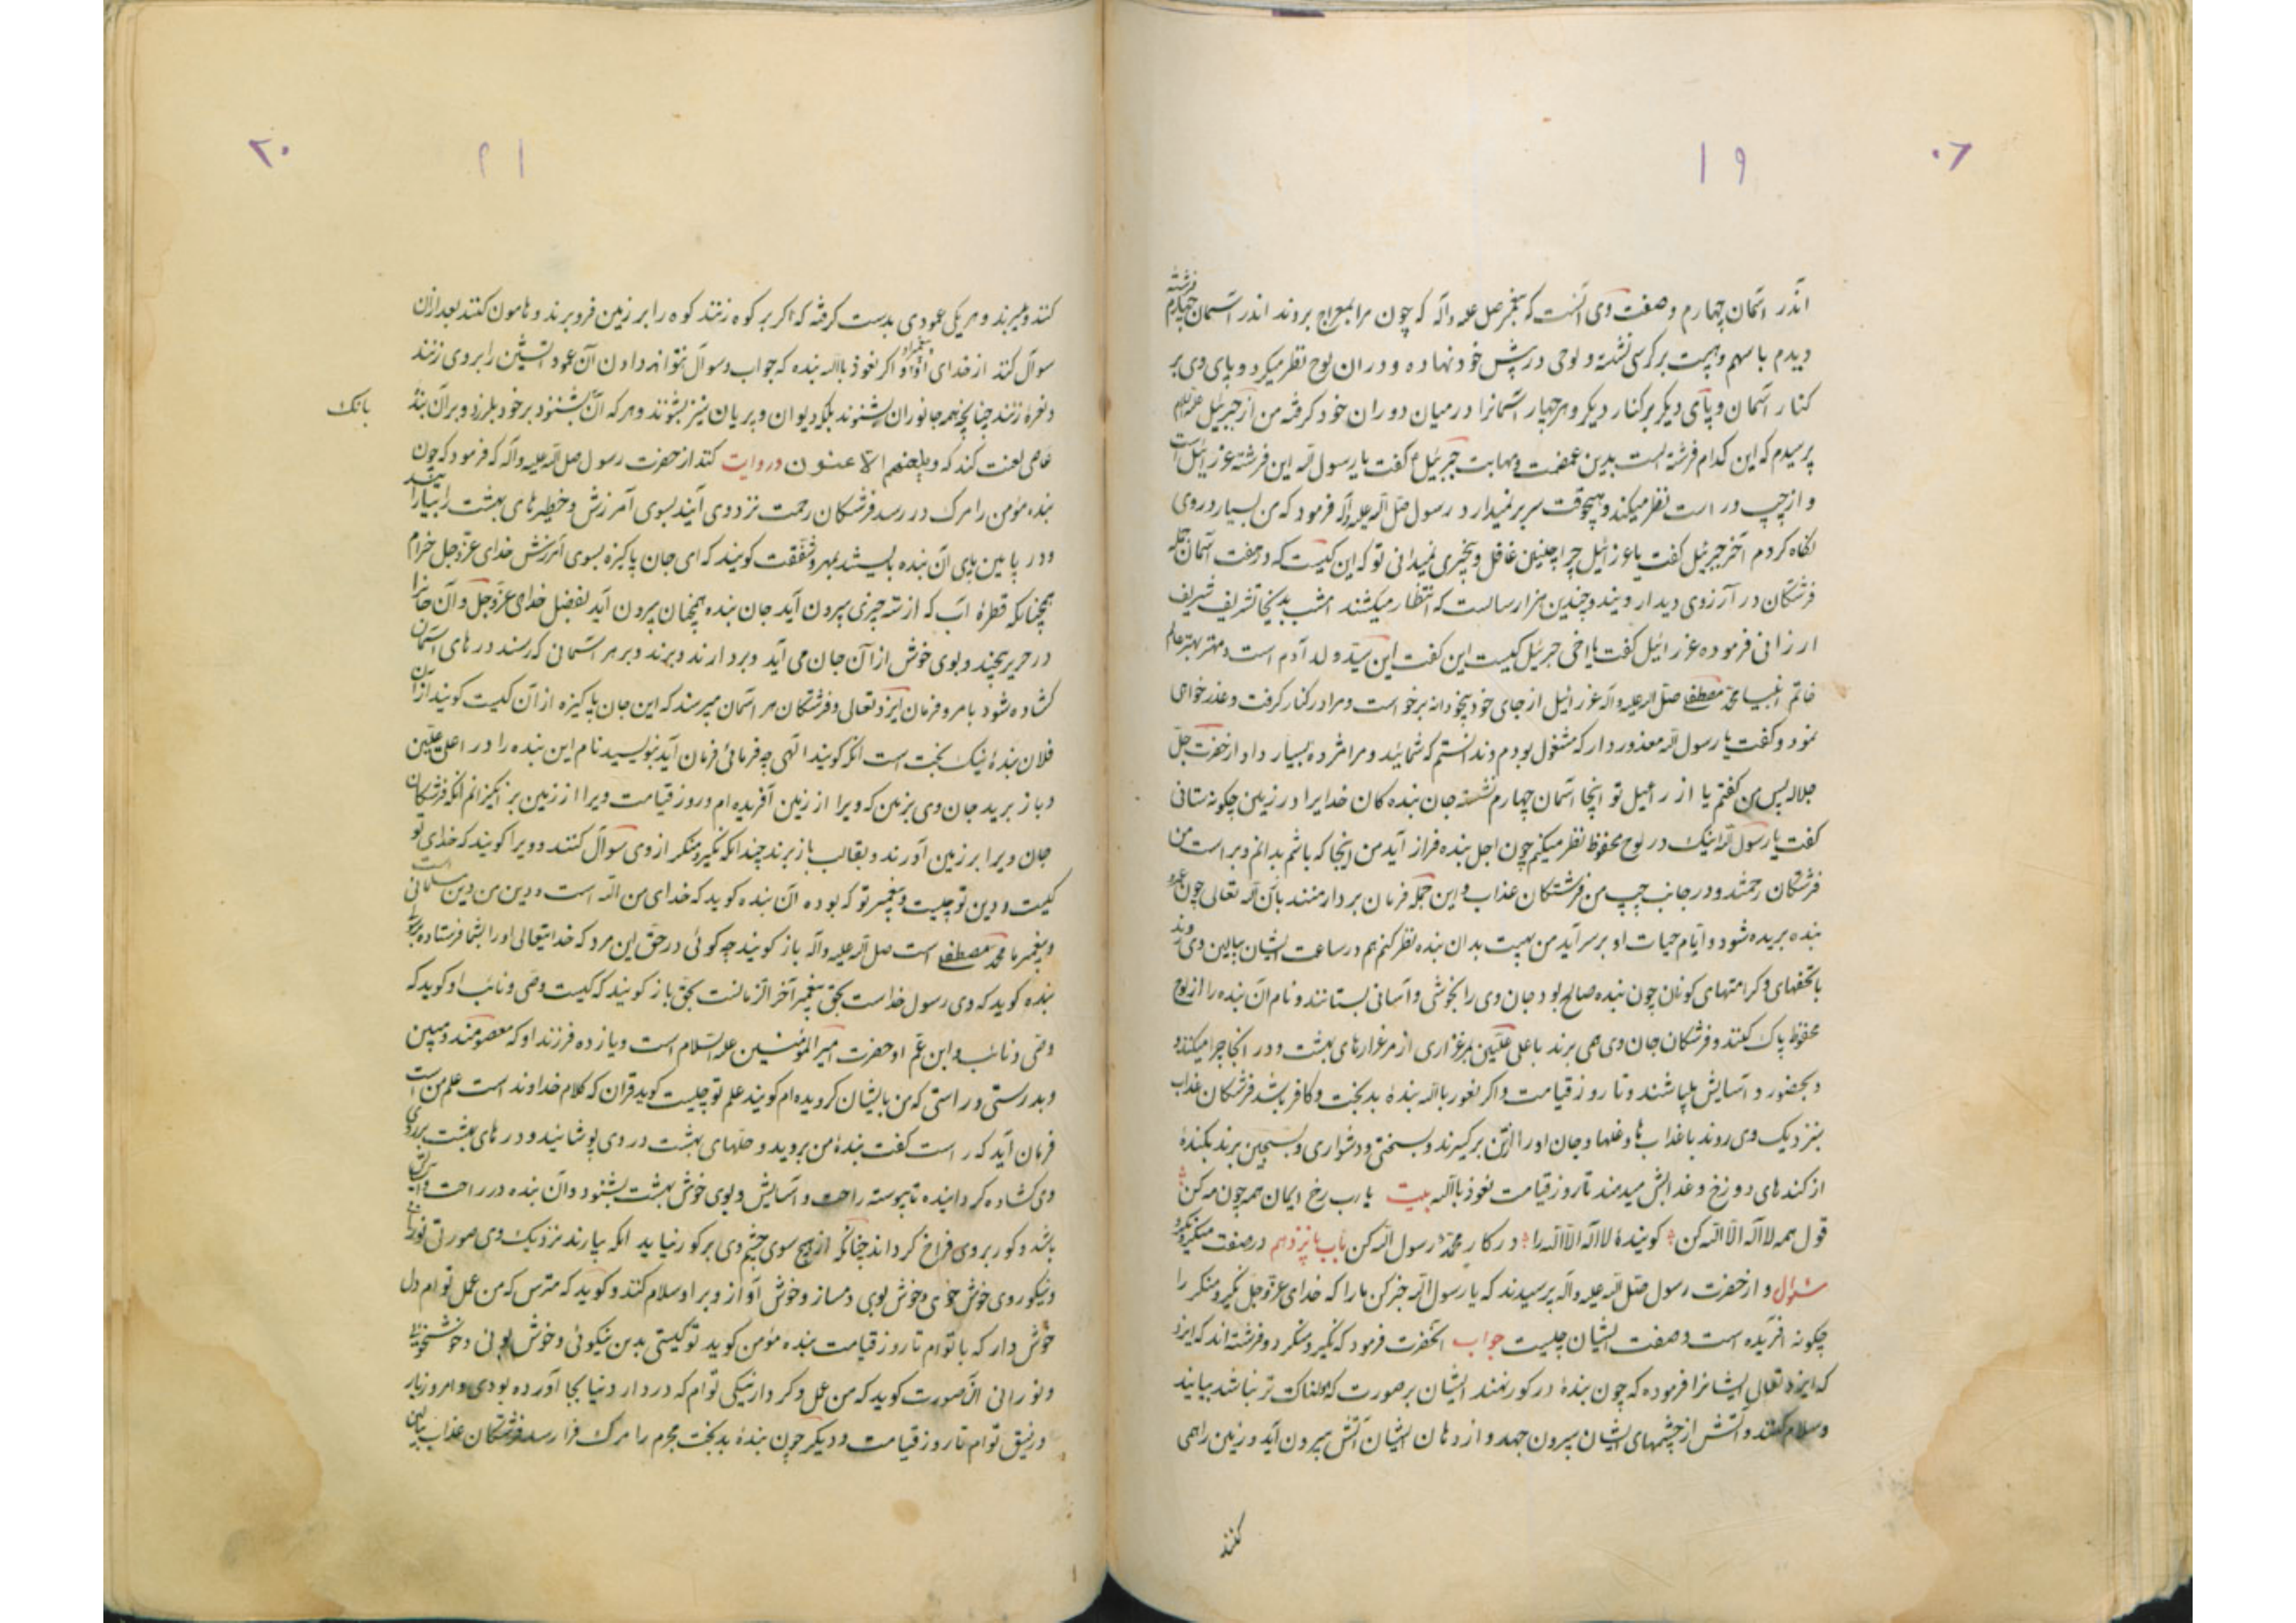 ۰۶
۱۹
اندر آسمان چهارم وصفت وی آنست که پیغمبر صل علیه واله که چون مرا بمعراج بردند اندر آسمان چهارم فرشته
دیدم با سهم و هیبت بر کرسی نشسته و لوحی در پیش خود نهاده و در ان لوح نظر میکرد و پای وی بر
کنار آسمان و پای دیگر بر کنار دیگر و هر چهار آسمانرا در میان دو ران خود گرفته من از جبرئیل علیه السلام
پرسیدم که این کدام فرشته است بدین عضمت و مهابت جبرئیل گفت یا رسول الله این فرشته عزرائیل است
و از چپ و راست نظر میکند و هیچوقت سر بر نمیدارد رسول صلی الله علیه وآله فرمود که من بسیار در وی
نگاه کردم آخر جبرئیل گفت یا عزرائیل چرا چنین غافل و بیخبری نمیدانی تو که این کیست که در هفت آسمان جمله
فرشتگان در آرزوی دیدار ویند و چندین هزار سالست که انتظار میکشند امشب بدینجا تشریف شریف
ارزانی فرموده عزرائیل گفت یا اخی جبرئیل کیست این گفت این سید ولد آدم است و مهتر بهتر عالم
خاتم انبیا محمد مصطفی صلی الله علیه واله عزرائیل از جای خود بیخودانه برخواست و مرا در کنار گرفت و عذر خواهی
نمود و گفت یا رسول الله معذور دار که مشغول بودم و ندانستم که شمائید و مرا مژده بسیار داد از حضرت جل
جلاله پس من گفتم یا عزرائیل تو اینجا آسمان چهارم نشسته جان بنده کان خدایرا در زمین چگونه ستانی
گفت یا رسول الله اینک در لوح محفوظ نظر میکنم چون اجل بنده فراز آید من اینجا که باشم بدانم و بر راست من
فرشتگان رحمتند و در جانب چپ من فرشتگان عذاب و این جمله فرمان بردار منند بآن الله تعالی چون عمر
بنده بریده شود و ایام حیات او بر سر آید من بهیبت بدان بنده نظر کنم هم در ساعت ایشان ببالین وی روند
با تحفهای و کرامتهای کونان چون بنده صالح بود جان وی را بخوشی و آسانی بستانند و نام آن بنده را از لوح
محفوظ پاک کنند و فرشتگان جان وی همی برند با علی علیین بمرغزاری از مرغزارهای بهشت و در انجا چرا میکند و
و بحضور و آسایش میباشند و تا روز قیامت و اگر نعوذ بالله بنده بدبخت و کافر باشد فرشتگان عذاب
بنزدیک وی روند با عذابها و غلها و جان او را ازتن برگیرند و بسختی و دشواری و بسجین برند بکندهٔ
از کندهای دوزخ و عذابش میدهند تا روز قیامت نعوذ بالله بیت یا رب رخ ایمان همه چون مه کن
قول همه لا اله الا الله کن گویندهٔ لا اله الا الله را در کار محمد رسول الله کن باب پانزدهم در صفت منکر و نکیر
سئوال و از حضرت رسول صلی الله علیه واله پرسیدند که یا رسول الله خبر کن ما را که خدای عز و جل نکیر و منکر را
چگونه افریده است و صفت ایشان چیست جواب انحضرت فرمود که نکیر و منکر دو فرشته اند که ایزد
که ایزد تعالی ایشانرا فرموده که چون بندهٔ در گور نهند ایشان بر صورت که سهمناک تر نباشد بیایند
و سلام کنند و آتش از چشمهای ایشان بیرون جهد و از دهان ایشان آتش بیرون آید و زمین را همی
کنند
۲۱
۲۰
کنند و میبرند و هر یکی عمودی بدست گرفته که اگر بر کوه زنند کوه را بر زمین فرو برند و هامون کنند بعد ازان
سوآل کنند از خدای او و پیغمبر او اگر نعوذ بالله بنده که جواب و سوآل نتواند دادن آن عمود آتشین را بر وی زنند
و نعره زنند چنانچه همه جانوران بشنوند بلکه دیوان و پریان نیز بشنوند و هر که آن بشنود بر خود بلرزد و بر آن بنده
بانک
عاصی لعنت کند که ویلعنهم اللاعنون و روایت کنند از حضرت رسول صلی الله علیه واله که فرمود که چون
بنده مؤمن را مرگ در رسد فرشتگان رحمت نزد وی آیند بسوی آمرزش و خطیرهای بهشت را بیارایند
و در پایین پای آن بنده بایستند بمهر و شفقت گویند که ای جان پاکیزه بسوی آمرزش خدای عز و جل خرام
همچنانکه قطرهٔ آب که از سر چیزی بیرون آید جان بنده همچنان بیرون آید بفضل خدای عز و جل و آن جانرا
در حریر پیچند و بوی خوش از آن جان می آید و بردارند و برند و بر هر آسمانی که رسند درهای آسمان
گشاده شود بامر و فرمان ایزد تعالی و فرشتگان هر آسمان میپرسند که این جان پاکیزه از آن کیست گویند از آن
فلان بندهٔ نیک بخت است انگه گویند الهی چه فرمائی فرمان آید بنویسید نام این بنده را در اعلی علیین
و باز برید جان وی بزمین که ویرا از زمین آفریده ام و روز قیامت ویرا از زمین بر انگیزانم انگه فرشتگان
جان ویرا بر زمین آورند و بقالب باز برند چندانکه نکیر و منکر از وی سوآل کنند و ویرا گویند که خدای تو
کیست و دین تو چیست و پیغمبر تو که بوده آن بنده گوید که خدای من الله است و دین من دین مسلمانی است
و پیغمبر ما محمد مصطفی است صلی الله علیه واله باز گویند چه گوئی در حق این مرد که خدایتعالی او را بشما فرستاده بود
بنده گوید که وی رسول خداست بحق پیغمبر آخر الزمانست بحق باز گویند که کیست وصی و نائب او گوید که
وصی و نائب و ابن عم او حضرت امیر المؤمنین علیه السلام است و یازده فرزند او که معصومند و مبین
و بدرستی و راستی که من بایشان گرویده ام گویند علم تو چیست گوید قران که کلام خداوند است علم من است
فرمان آید که راست گفت بندهٔ من بروید و حلهای بهشت در وی پوشانید و درهای بهشت بر روی
وی گشاده گردانیده تا پیوسته راحت و آسایش و بوی خوش بهشت بشنود و آن بنده در راحت و آسایش
باشد و گور بر وی فراخ گرداند چنانکه از هیچ سوی چشم وی بر گور نیاید انگه بیارند نزدیک وی صورتی نورانی
و نیکو روی خوش خوی و خوش بوی و مساز و خوش آواز و بر او سلام کند و گوید که مترس که من عمل توام دل
خوش دار که با توام تا روز قیامت بنده مؤمن گوید تو کیستی بدین نیکوئی و خوش بوئی و خوشخوئی
و نورانی آن صورت گوید که من عمل و کردار نیکی توام که در دار دنیا بجا آورده بودی و امروز یار
و رفیق توام تا روز قیامت و دیگر چون بندهٔ بدبخت مجرم را مرگ فرا رسد فرشتگان عذاب ببالین